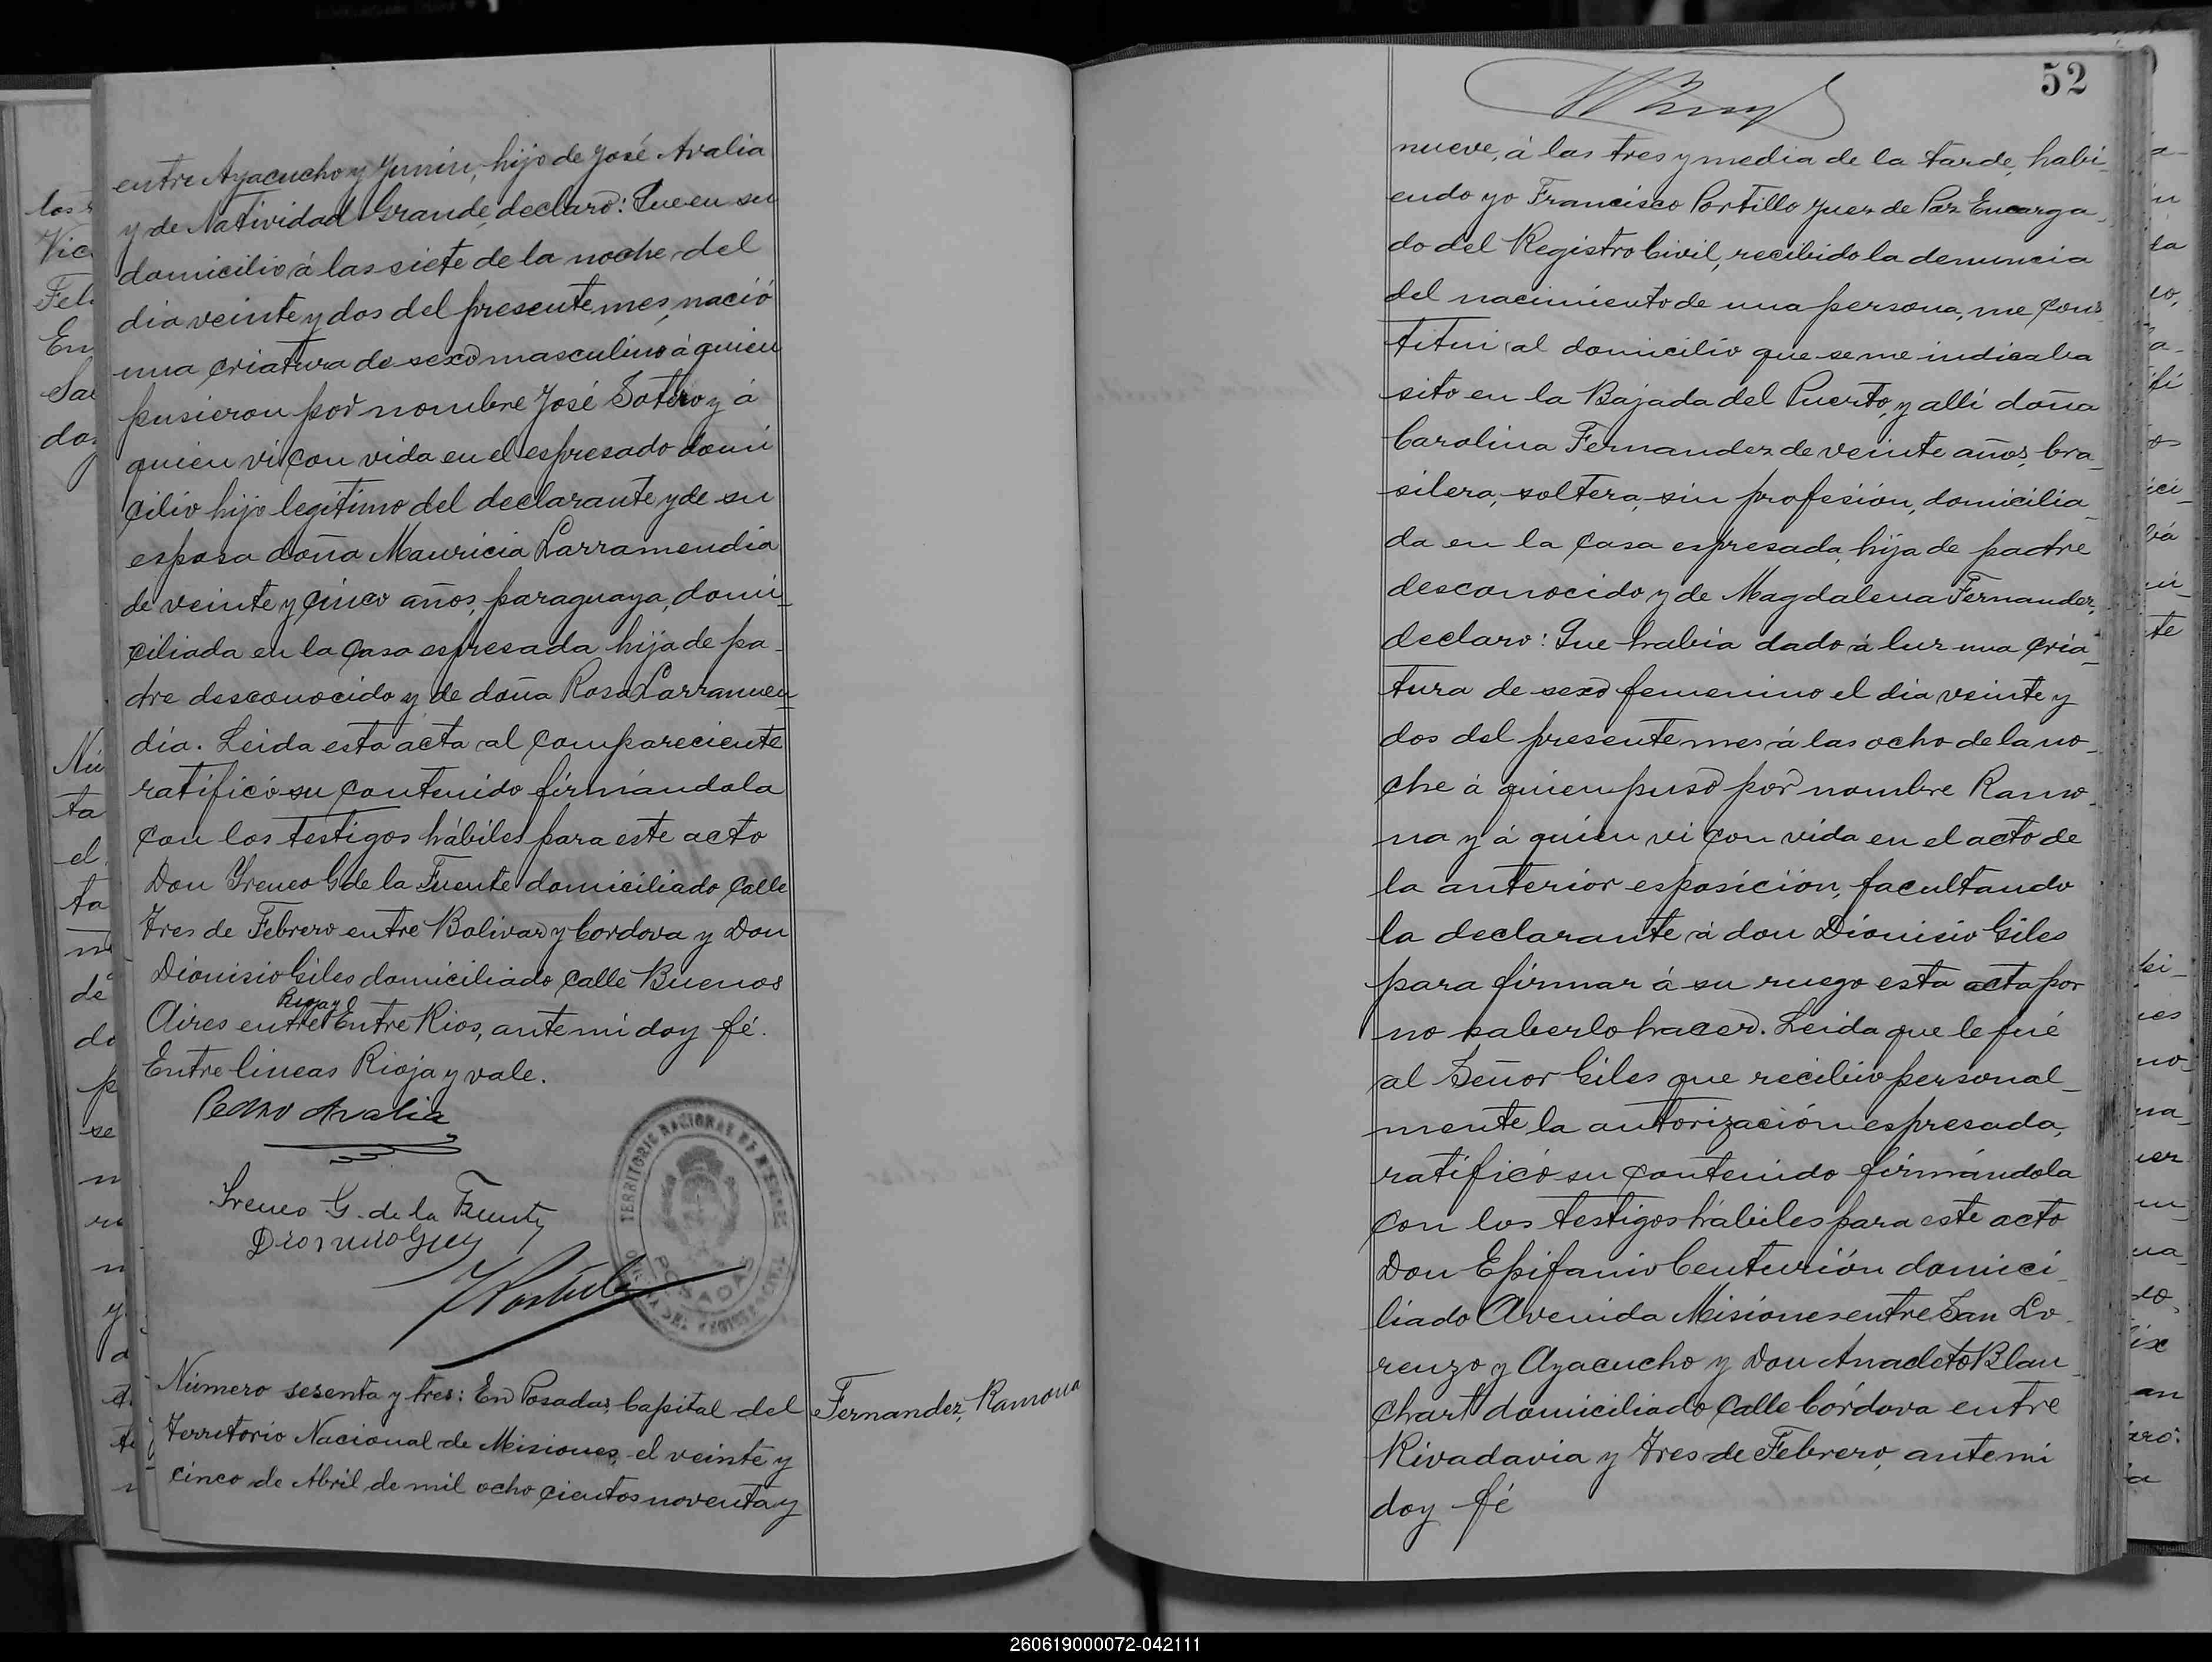 entre Ayacucho y Junin, hijo de José Avalia
y de Natividad Grande, declaró: Que en su
domicilio á las siete de la noche del
dia veinte y dos del presente mes, nació
una criatura de sexo masculino á quien
pusieron por nombre José Sotero y á
quien vi con vida en el espresado domi
cilio hijo legitimo del declarante y de su
esposa doña Mauricia Larramendia
de veinte y cinco años, paraguaya, domi_
ciliada en la casa espresada hija de pa_
dre desconocido y de doña Rosa Larramen_
dia. Leida esta acta al compareciente
ratificó su contenido firmándola
con los testigos hábiles para este acto
Don Yreneo G. de la Fuente domiciliado calle
Tres de Febrero entre Bolivar y Cordova y Don
Dionisio Giles domiciliado calle Buenos
Rioja y
Aires entre Entre Rios, ante mi doy fé.
Entre lineas Rioja y vale.
Pedro Avalia
Yreneo G. de la Fuente
Dionisio Giles
F Portillo
TERRITORIO NACIONAL DE MISIONES
POSADAS
OFICINA DEL REGISTRO CIVIL
Número sesenta y tres: En Posadas, Capital del
Territorio Nacional de Misiones, el veinte y
cinco de Abril de mil ocho cientos noventa y
Fernandez, Ramona
52
nueve, á las tres y media de la tarde, habi_
endo yo Francisco Portillo Juez de Paz Encarga_
do del Registro Civil, recibido la denuncia
del nacimiento de una persona, me cons
titui al domicilio que se me indicaba
sito en la Bajada del Puerto, y allí doña
Carolina Fernandez de veinte años, bra_
silera, soltera, sin profesión, domicilia_
da en la casa espresada, hija de padre
desconocido y de Magdalena Fernandez,
declaro: Que habia dado á luz una cria_
tura de sexo femenino el dia veinte y
dos del presente mes á las ocho de la no_
che á quien puso por nombre Ramo_
na y á quien vi con vida en el acto de
la anterior esposición, facultando
la declarante á don Dionisio Giles
para firmar á su ruego esta acta por
no saberlo hacer. Leida que le fué
al Señor Giles que recibió personal_
mente la autorización espresada,
ratificó su contenido firmándola
con los testigos hábiles para este acto
Don Epifanio Centurión domici_
liado Avenida Misiones entre San Lo_
renzo y Ayacucho y Don Anacleto Blan_
chart domiciliado calle Córdova entre
Rivadavia y Tres de Febrero, ante mi
doy fé
260619000072-042111